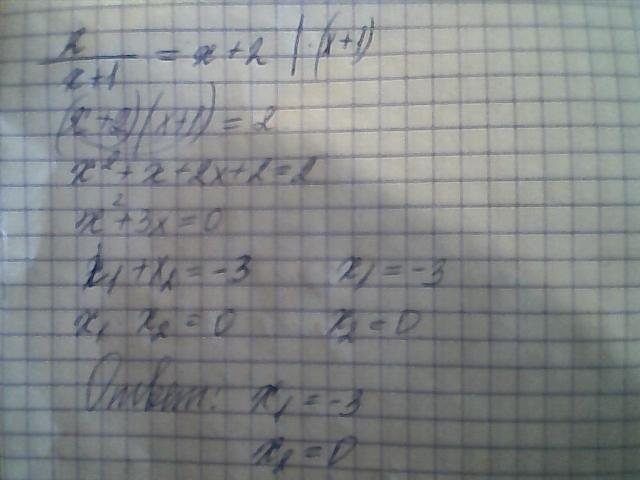 2/(x+1) = x+2 | ·(x+1)
(x+2)(x+1) = 2
x²+x+2x+2=2
x²+3x=0
x₁+x₂=-3 x₁=-3
x₁ x₂=0 x₂=0
Ответ: x₁=-3
x₂=0